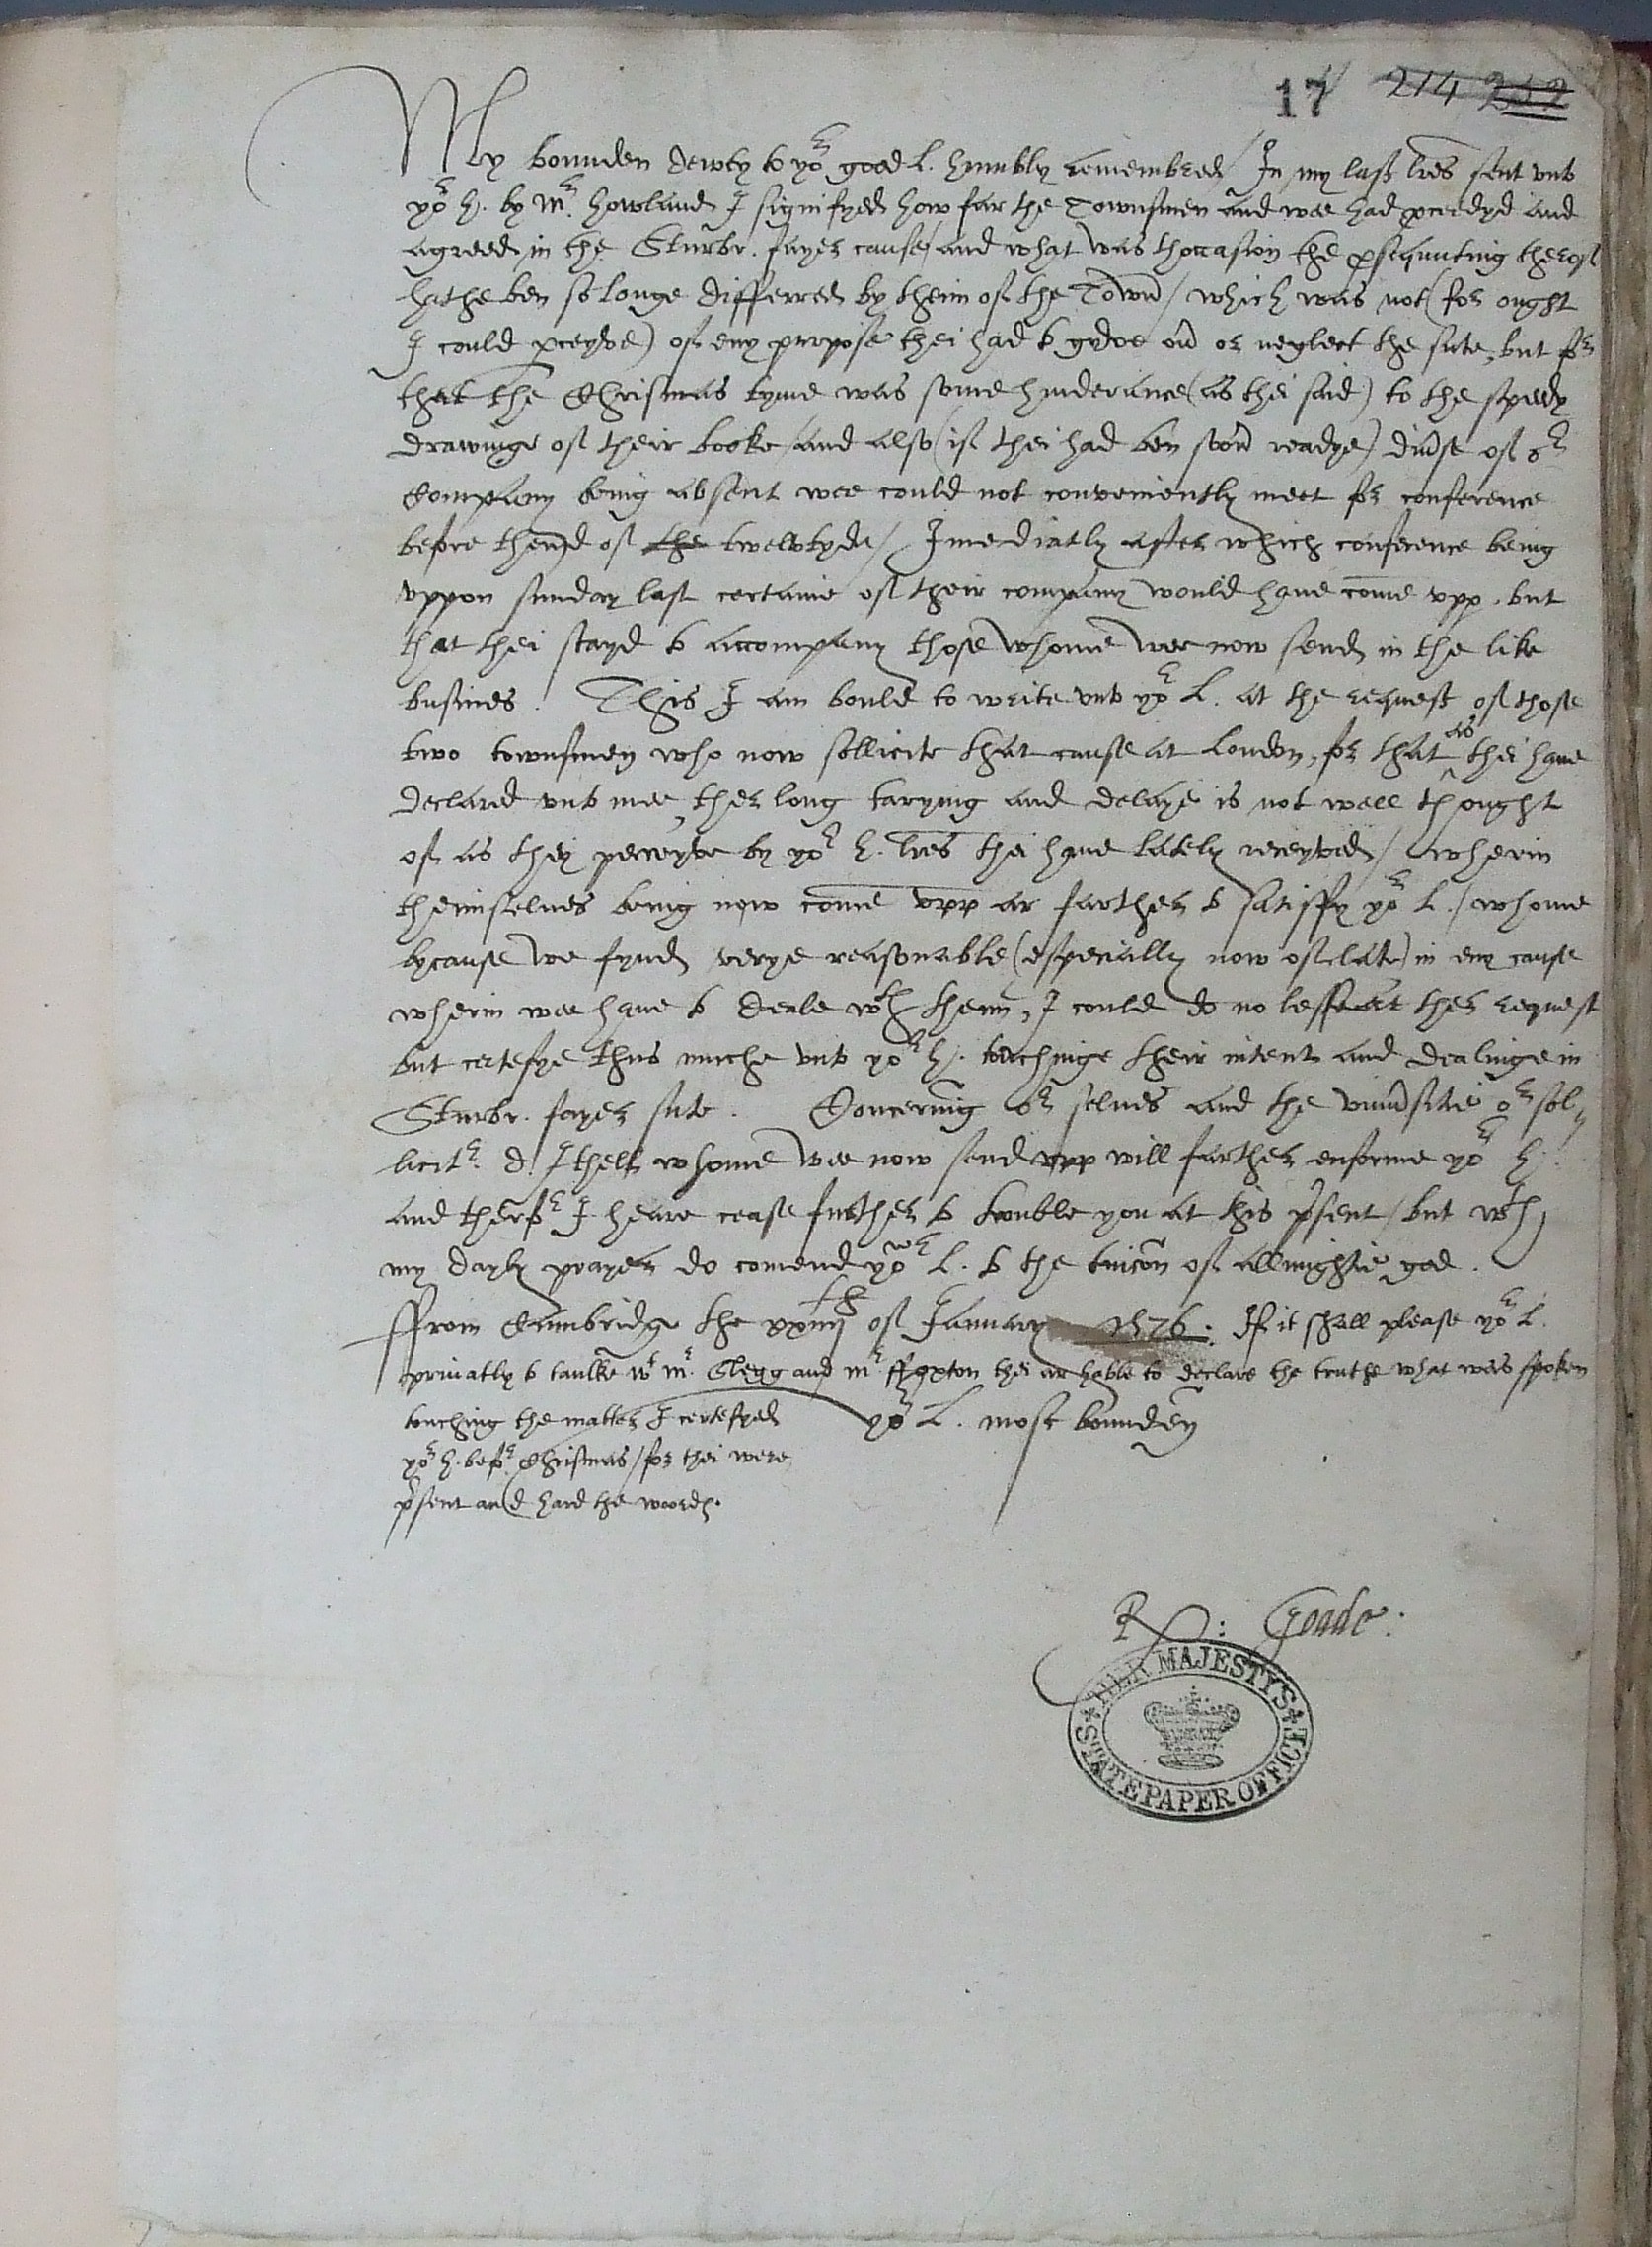 17 214 232
My bounden dewty to yor good L. humbly remembred / In my last lres sent vnto
yor h. by Mr. Howland I signifyed how far the Townsmen and wee had pceedyd and
agreed in the Sturbr. fayer cause / and what was thoccasion the psequuting therof
hathe ben so longe differred by theim of the Town / which was not (for ought
I could pceyve) of eny purpose thei had to gyve ou or neglect the sute, but for
that the Christmas tyme was some hinderance (as thei said) to the spedy
drawinge of their booke / and also (if thei had ben soon readye) diuse of or
Company being absent wee could not conveniently meet for conference
before thend of the twelvtyde / Imediatly after which conference being
vppon sunday last certaine of their company would haue come vpp, but
that thei stayd to accompany those whome wee now send in the like
busines. This I am bould to write vnto yor L. at the request of those
two townsmen who now sollicite that cause at London, for that as thei haue
declared vnto mee, ther long tarying and delaye is not well thought
of as they perceyve by yor h. lres thei haue lately receyved / wherin
theimselues being now come vpp ar farther to satisfy yor L. / whome
bycause we fynd verye reasonable (especially now of late) in eny cause
wherin wee haue to deale wth them, I could do no lesse at ther request
but certefye thus muche vnto yor h. towchinge their intent and dealinge in
Sturbr. fayer sute. Concerning or selues and the vniusitie or sol-
licitr. d. Ithell whome wee now send vpp will farther enforme yor h.
and therfor I heare cease further to trouble you at this psent / but wth
my dayly prayer do comend yor L. to the tuicon of allmightie god.
ffrom Cambridge the xxiiijth of January 1576. If it shall please yor L.
priuatly to taulke wt mr. Clegg and mr ffoxton thei ar hable to declare the truthe what was spoken
touching the matter I certefyed
yor h. befor Christmas / for thei were
psent and hard the woords.
yor L. most bounden
R: Goade:
HER MAJESTYS STATE PAPER OFFICE